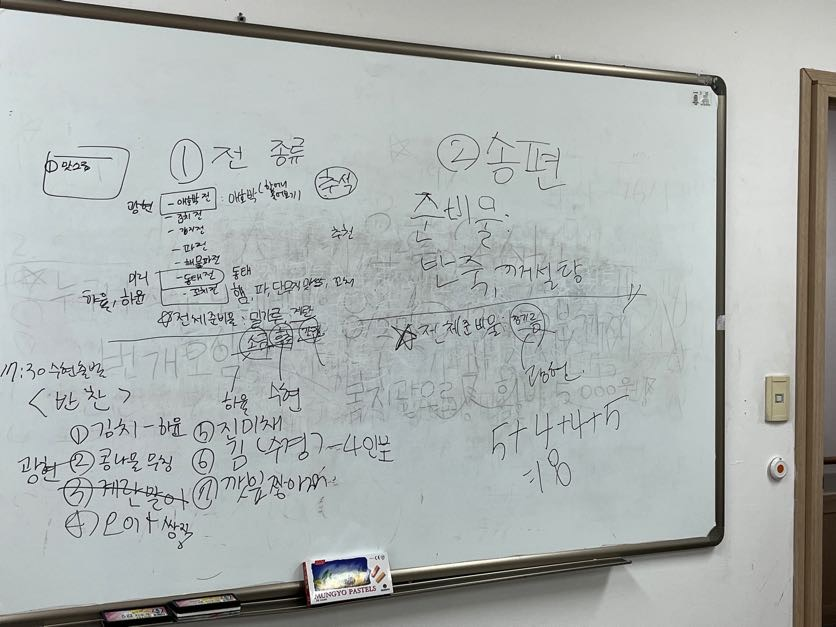 ① 전 종류
① 맛소금
광현 - 애호박전 : 애호박
- 김치전
- 감자전
- 파전
- 해물파전
- 동태전 동태
하율, 하윤 - 꼬치전 햄, 파, 단무지, 맛살, 꼬치
☆전체준비물: 밀가루, 계란
하율 수현
추석
추천
② 송편
준비물:
반죽, 깨설탕
☆ 전체준비물:
광현
5+4+4+5
=18
17:30 수현출발
<반찬>
① 김치 - 하윤
광현 ② 콩나물 무침
③ 계란말이
④ 오이 + 쌈장
⑤ 진미채
⑥ 김 (수경) - 4인분
⑦ 깻잎짱아찌
MUNGYO PASTELS